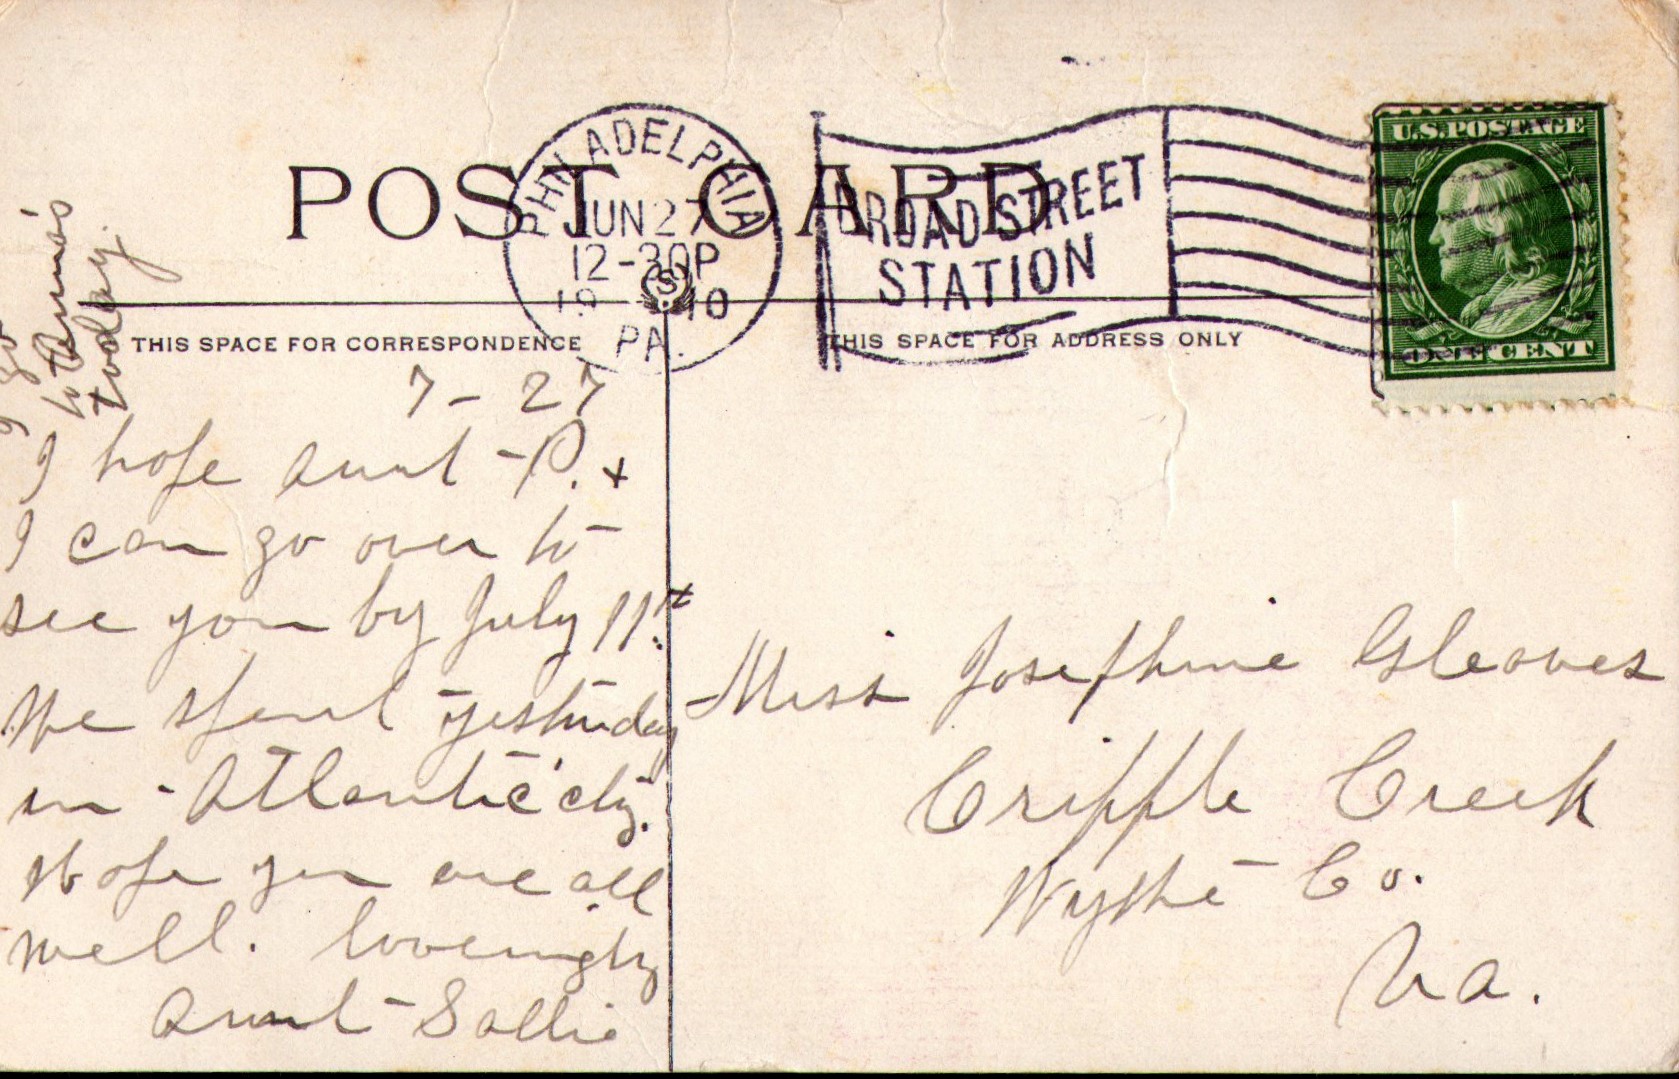 POST CARD
PHILADELPHIA
JUN 27
12-30P
19 10
PA.
BROAD STREET
STATION
U.S. POSTAGE
ONE CENT
THIS SPACE FOR CORRESPONDENCE
THIS SPACE FOR ADDRESS ONLY
7-27
I hope aunt P. +
I can go over to
see you by July 11st.
We spent yesterday
in Atlantic City.
Hope you are all
well. Loveingly
Aunt Sallie
I go
to Anna's
today.
Miss Josephine Gleaves
Cripple Creek
Wythe Co.
Va.